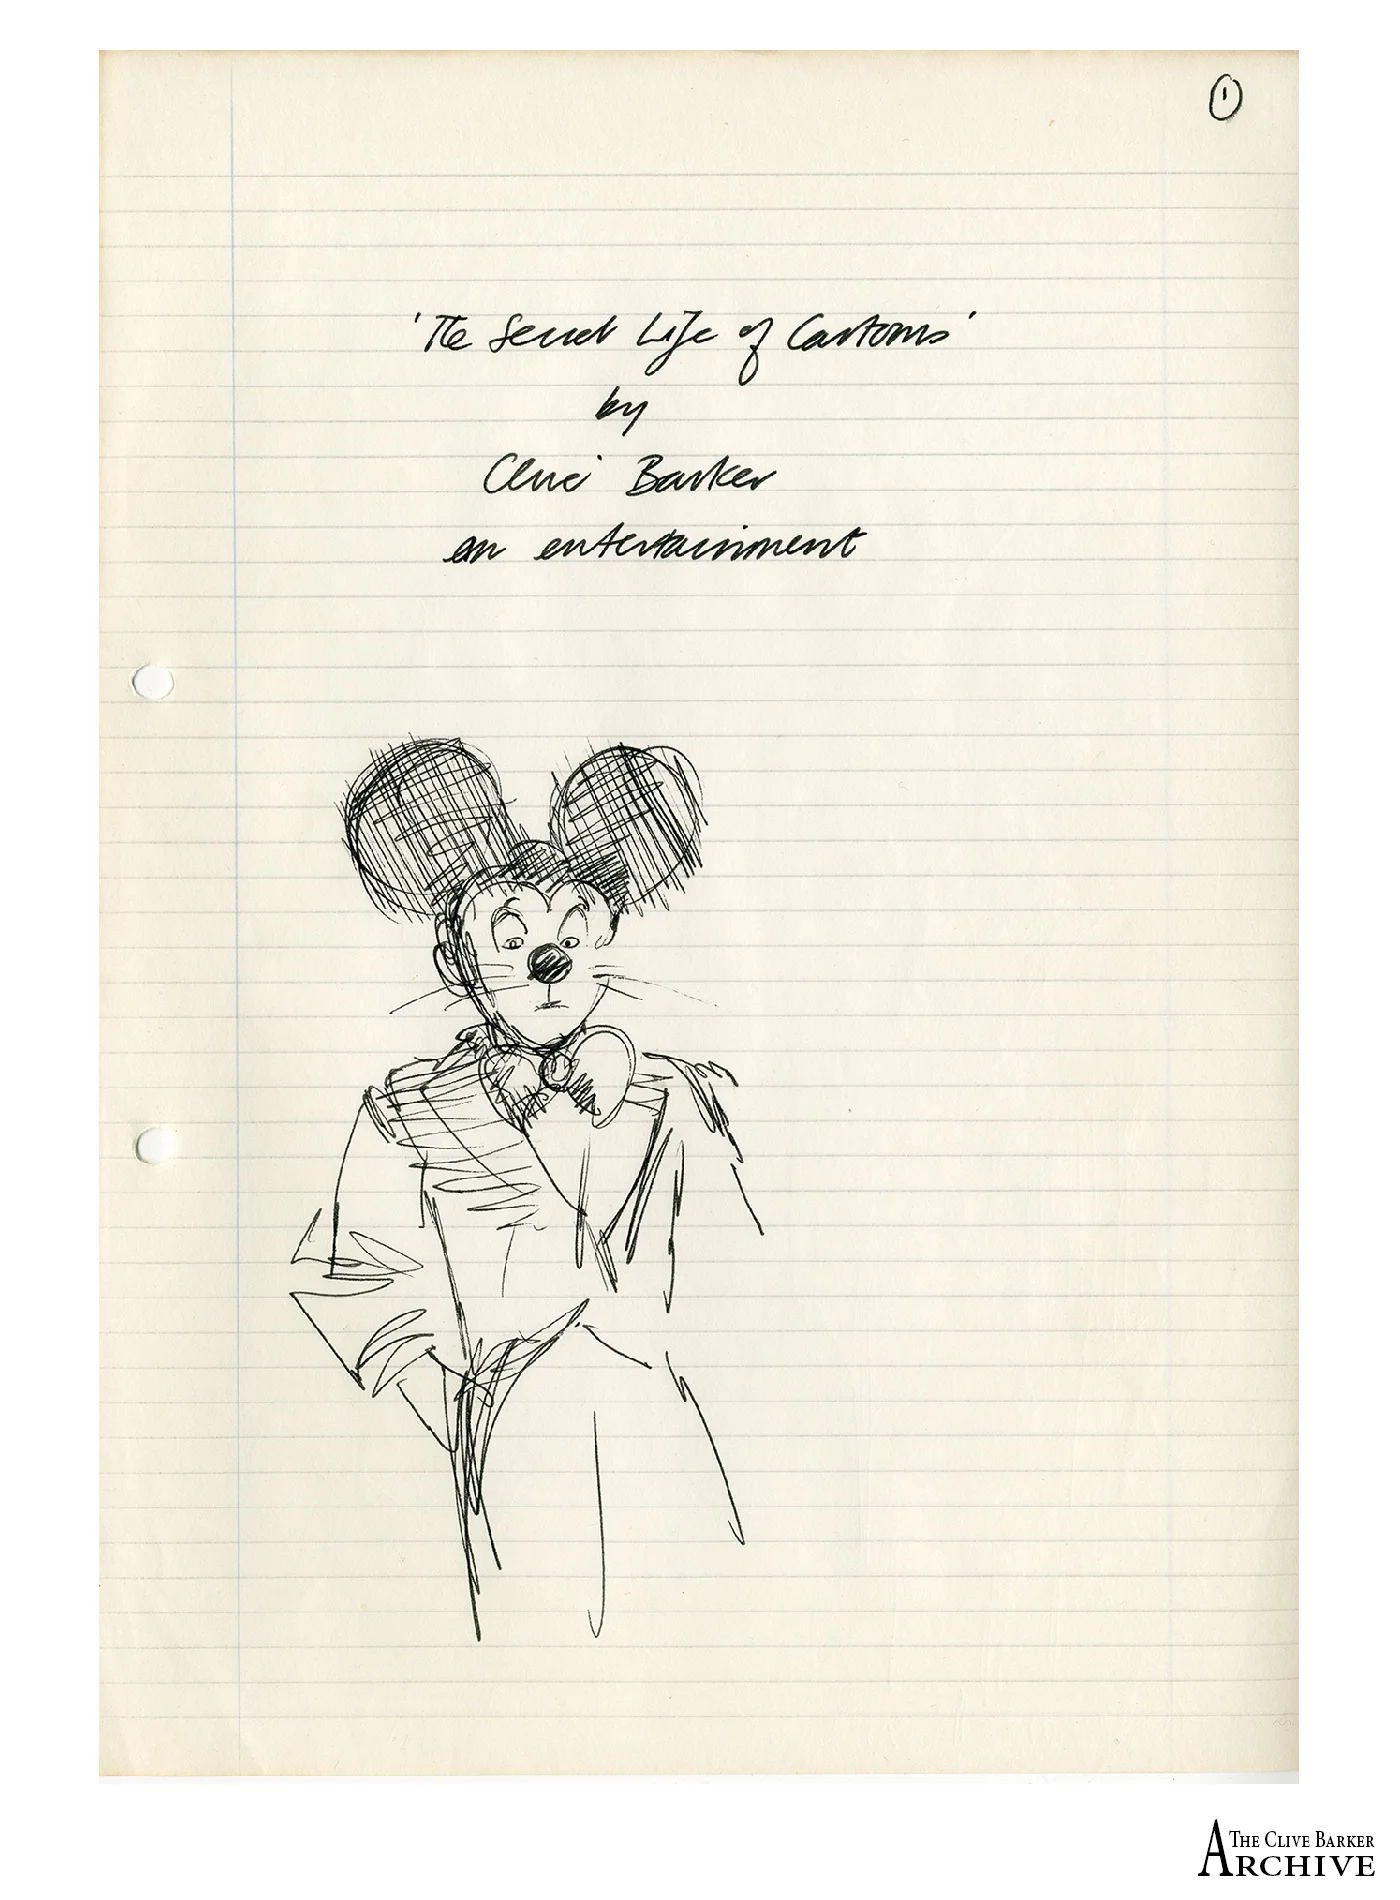 1
'The Secret Life of Cartoons'
by
Clive Barker
an entertainment
THE CLIVE BARKER
ARCHIVE